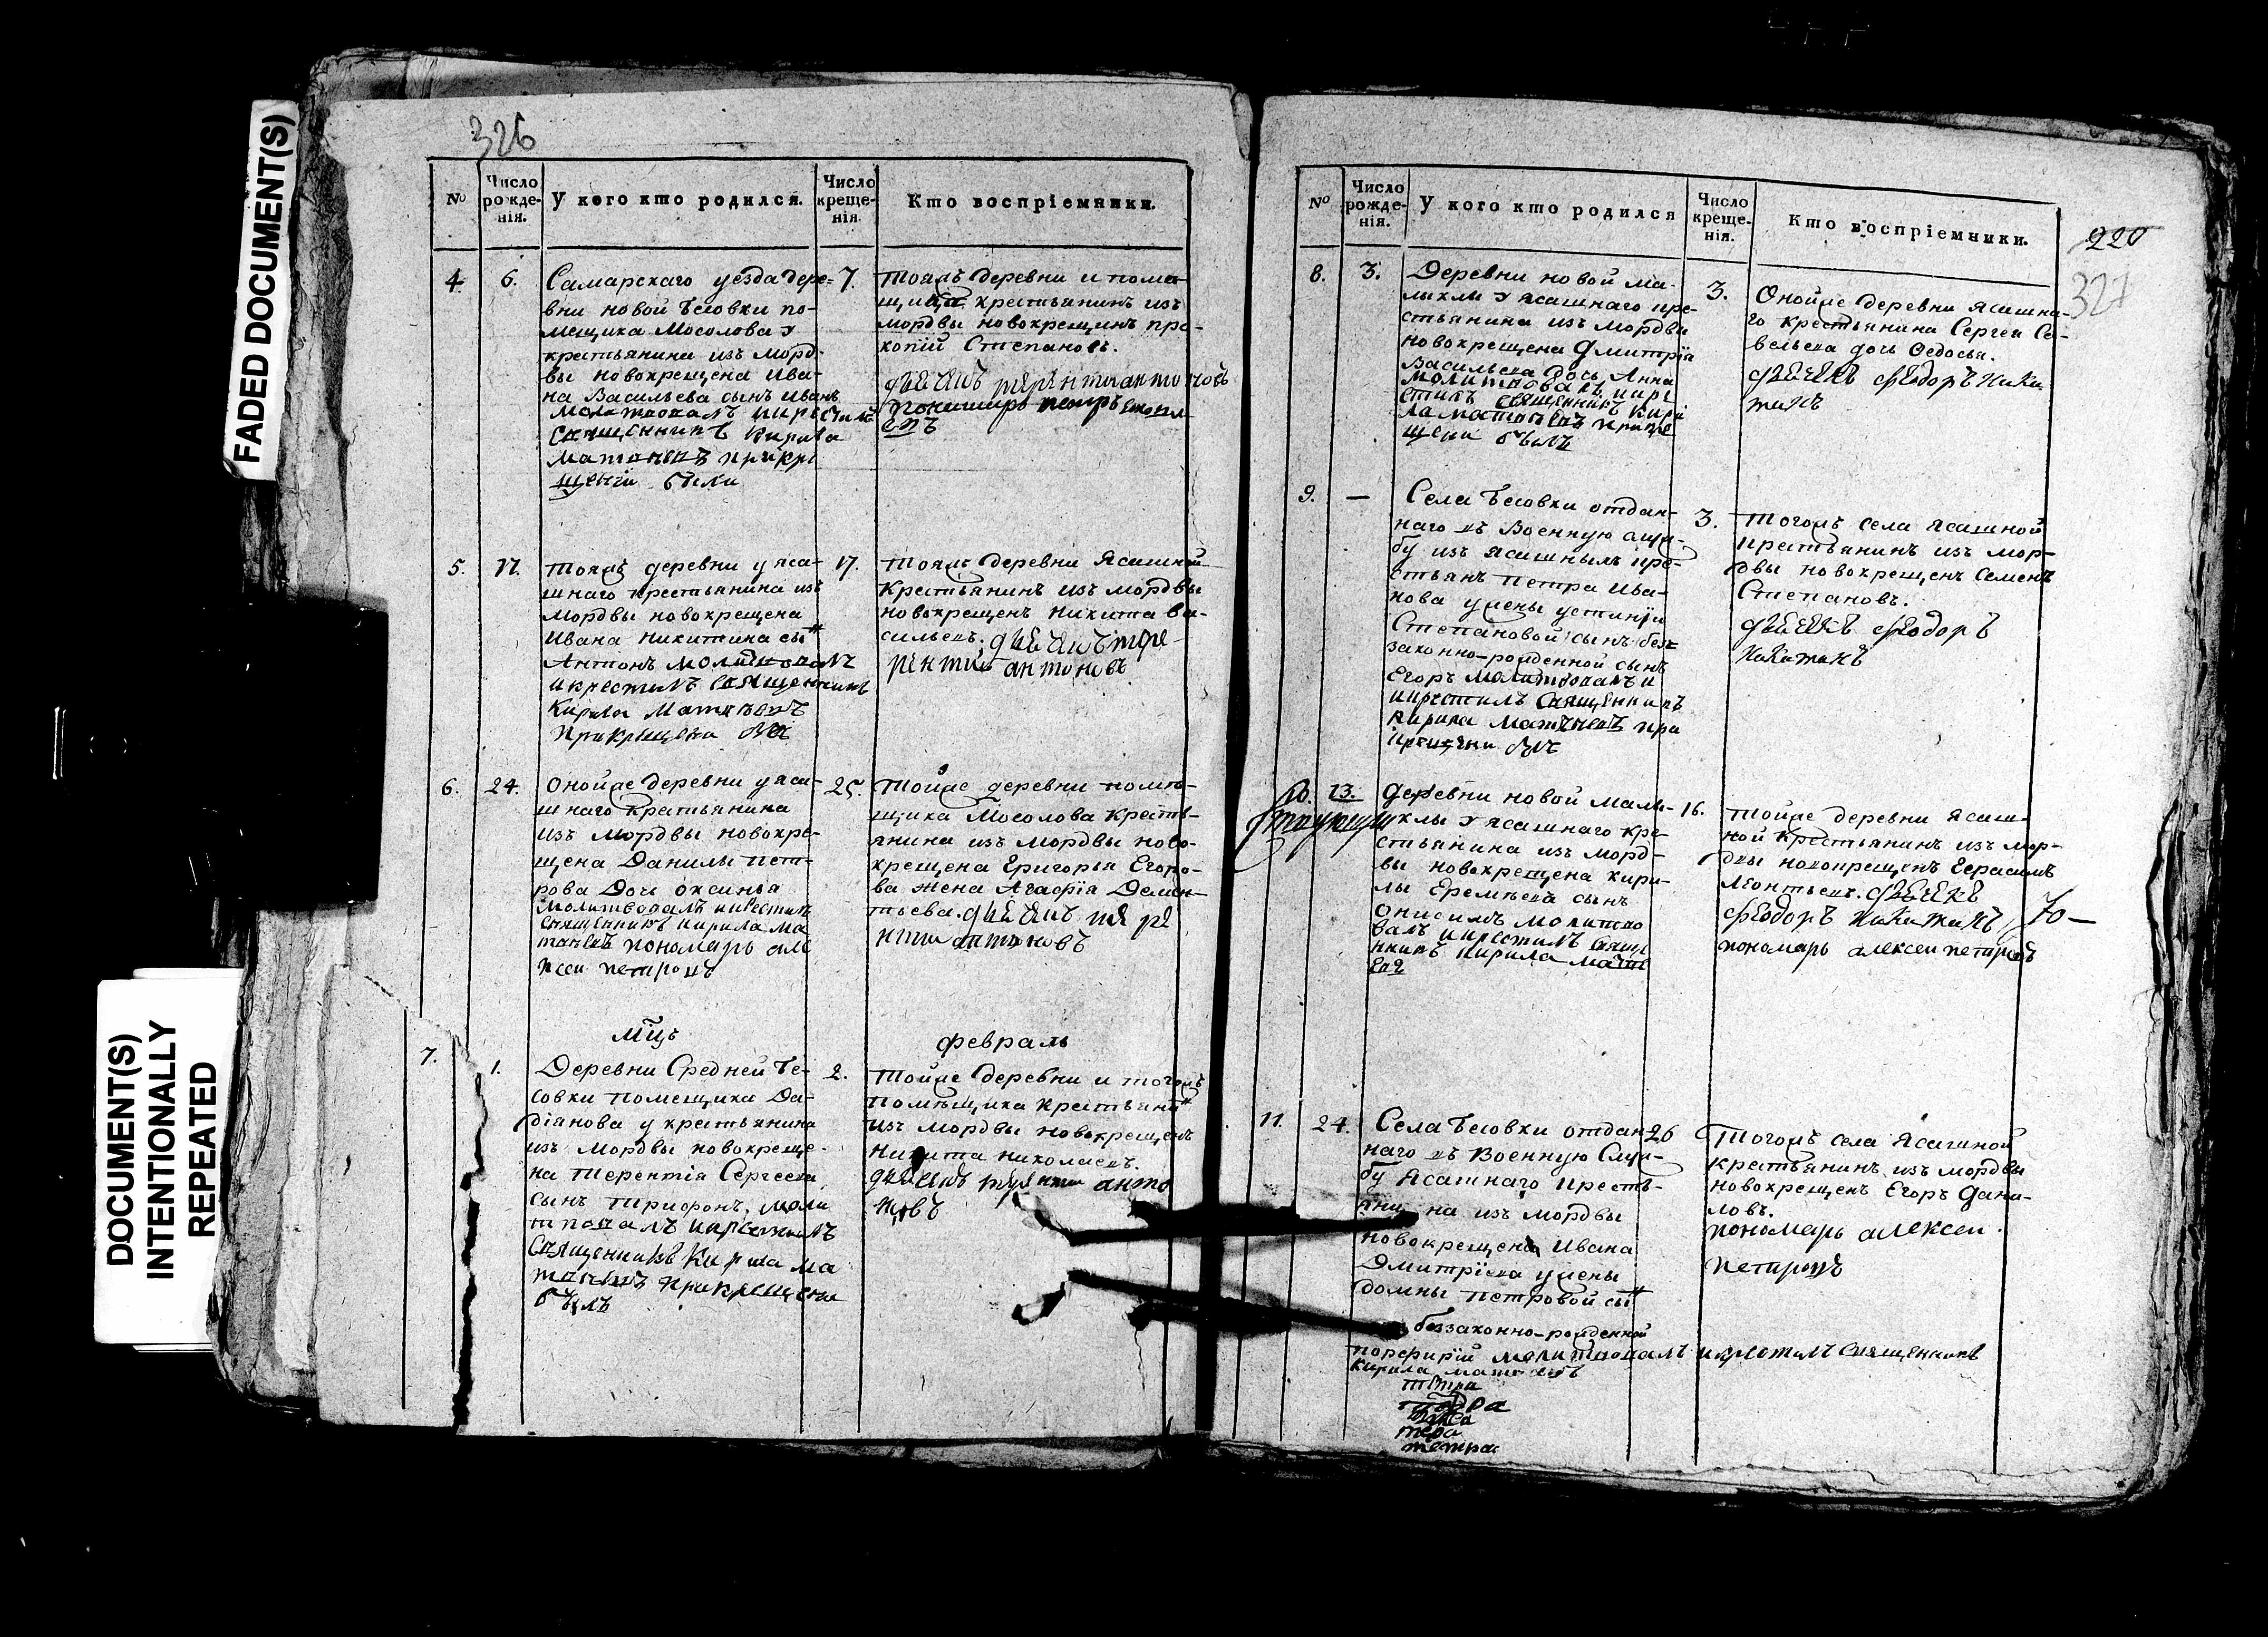 FADED DOCUMENT(S)
DOCUMENT(S)
INTENTIONALLY
REPEATED
326
№
Число рожденія.
У кого кто родился.
Число крещенія.
Кто воспріемники.
4
6.
Самарскаго уезда дере-
вни новой Бесовки по-
мещика Мосолова у
крестьянина изъ морд-
вы новокрещена Ива-
на Васильева сынъ Иванъ
молитвовалъ икрестилъ
священникъ Кирила
Матвеевъ прикре
щеніи были
7.
тояжъ деревни и поме-
щика крестьянинъ изъ
мордвы новокрещинъ про-
копій Степановъ.
дьячекъ терентий антоновъ
5.
17.
тояжъ деревни у яса-
шнаго крестьянина изъ
мордвы новокрещена
Ивана Никитина сы
Антонъ молитвовалъ
икрестилъ священникъ
Кирила Матвеевъ
прикрещена
17.
тояжъ деревни Ясашной
Крестьянинъ изъ мордвы
новокрещенъ Никита ва-
сильевъ. дьячекъ тере-
рентий антоновъ
6.
24.
Онойже деревни у яса-
шнаго крестьянина
изъ мордвы новокре-
щена Данилы пет-
рова Дочь оксинья
молитвовалъ икрестилъ
священникъ Кирила ма
твеевъ пономарь але
ксеи петровъ
25.
тойже деревни поме-
щика Мосолова Кресть-
янина изъ мордвы ново-
крещена Григорья Егоро-
ва жена Агафія Демен-
тьева. дьячекъ тере
нти антоновъ
мць февраль
7.
1.
Деревни Средней Бе-
совки помещика Да-
діанова у крестьянина
изъ мордвы новокреще-
на Терентія Сергеева
сынъ Трифонъ. моли
твовалъ икрестилъ
Священникъ Кирила ма
твеевъ прикрещени
былъ
2.
тойже деревни и тогожъ
помещика крестьяни
изъ мордвы новокрещенъ
Никита николаевъ.
дьячекъ терентии анто
новъ
220
327
№
Число рожденія.
У кого кто родился
Число крещенія.
Кто воспріемники.
8.
3.
Деревни новой ма-
лыклы у ясашнаго кре-
стьянина изъ мордвы
новокрещена Дмитрія
Васильева дочь Анна
молитвовалъ икре
стилъ священникъ Кири
ла матвеевъ прикре
щени былъ
3.
Онойже деревни ясашна-
го крестьянина Сергея Са-
вельева дочь Федосья.
дьячекъ феодоръ Ники
тинъ
9.
—
Села Бесовки отдан-
наго въ Военную слу-
бу изъ ясашныхъ кре-
стьянъ петра Ива-
нова у жены устиньи
Степановой сынъ без-
законно-рожденной сынъ
Егоръ молитвовалъ и
икрестилъ Священникъ
Кирила матвеевъ при
крещени былъ
3.
тогожъ села ясашной
крестьянинъ изъ мор-
двы новокрещенъ Семенъ
Степановъ.
дьячекъ феодоръ
Никитинъ
10.
13.
деревни новой малы-
клы у ясашнаго кре-
стьянина изъ морд-
вы новокрещена кири-
лы Еремеева сынъ
Онисимъ молитво
валъ икрестилъ свяще
нникъ Кирила матв
евъ
16.
тойже деревни ясаш-
ной крестьянинъ изъ мор-
двы новокрещенъ Герасимъ
Леонтьевъ. дьячекъ
феодоръ Никитинъ
пономарь алексеи петровъ
70—
11.
24.
Села Бесовки отдан-
наго въ Военную Слу-
бу Ясашнаго кресть-
янина изъ мордвы
новокрещена Ивана
Дмитріева у жены
домны петровой сы
беззаконно-рожденной
порфирій молитвовалъ икрестилъ священникъ
Кирила матвеевъ
26
тогожъ села Ясашной
крестьянинъ изъ мордвы
новокрещенъ Егоръ Дани-
ловъ.
пономарь алексеи
петровъ